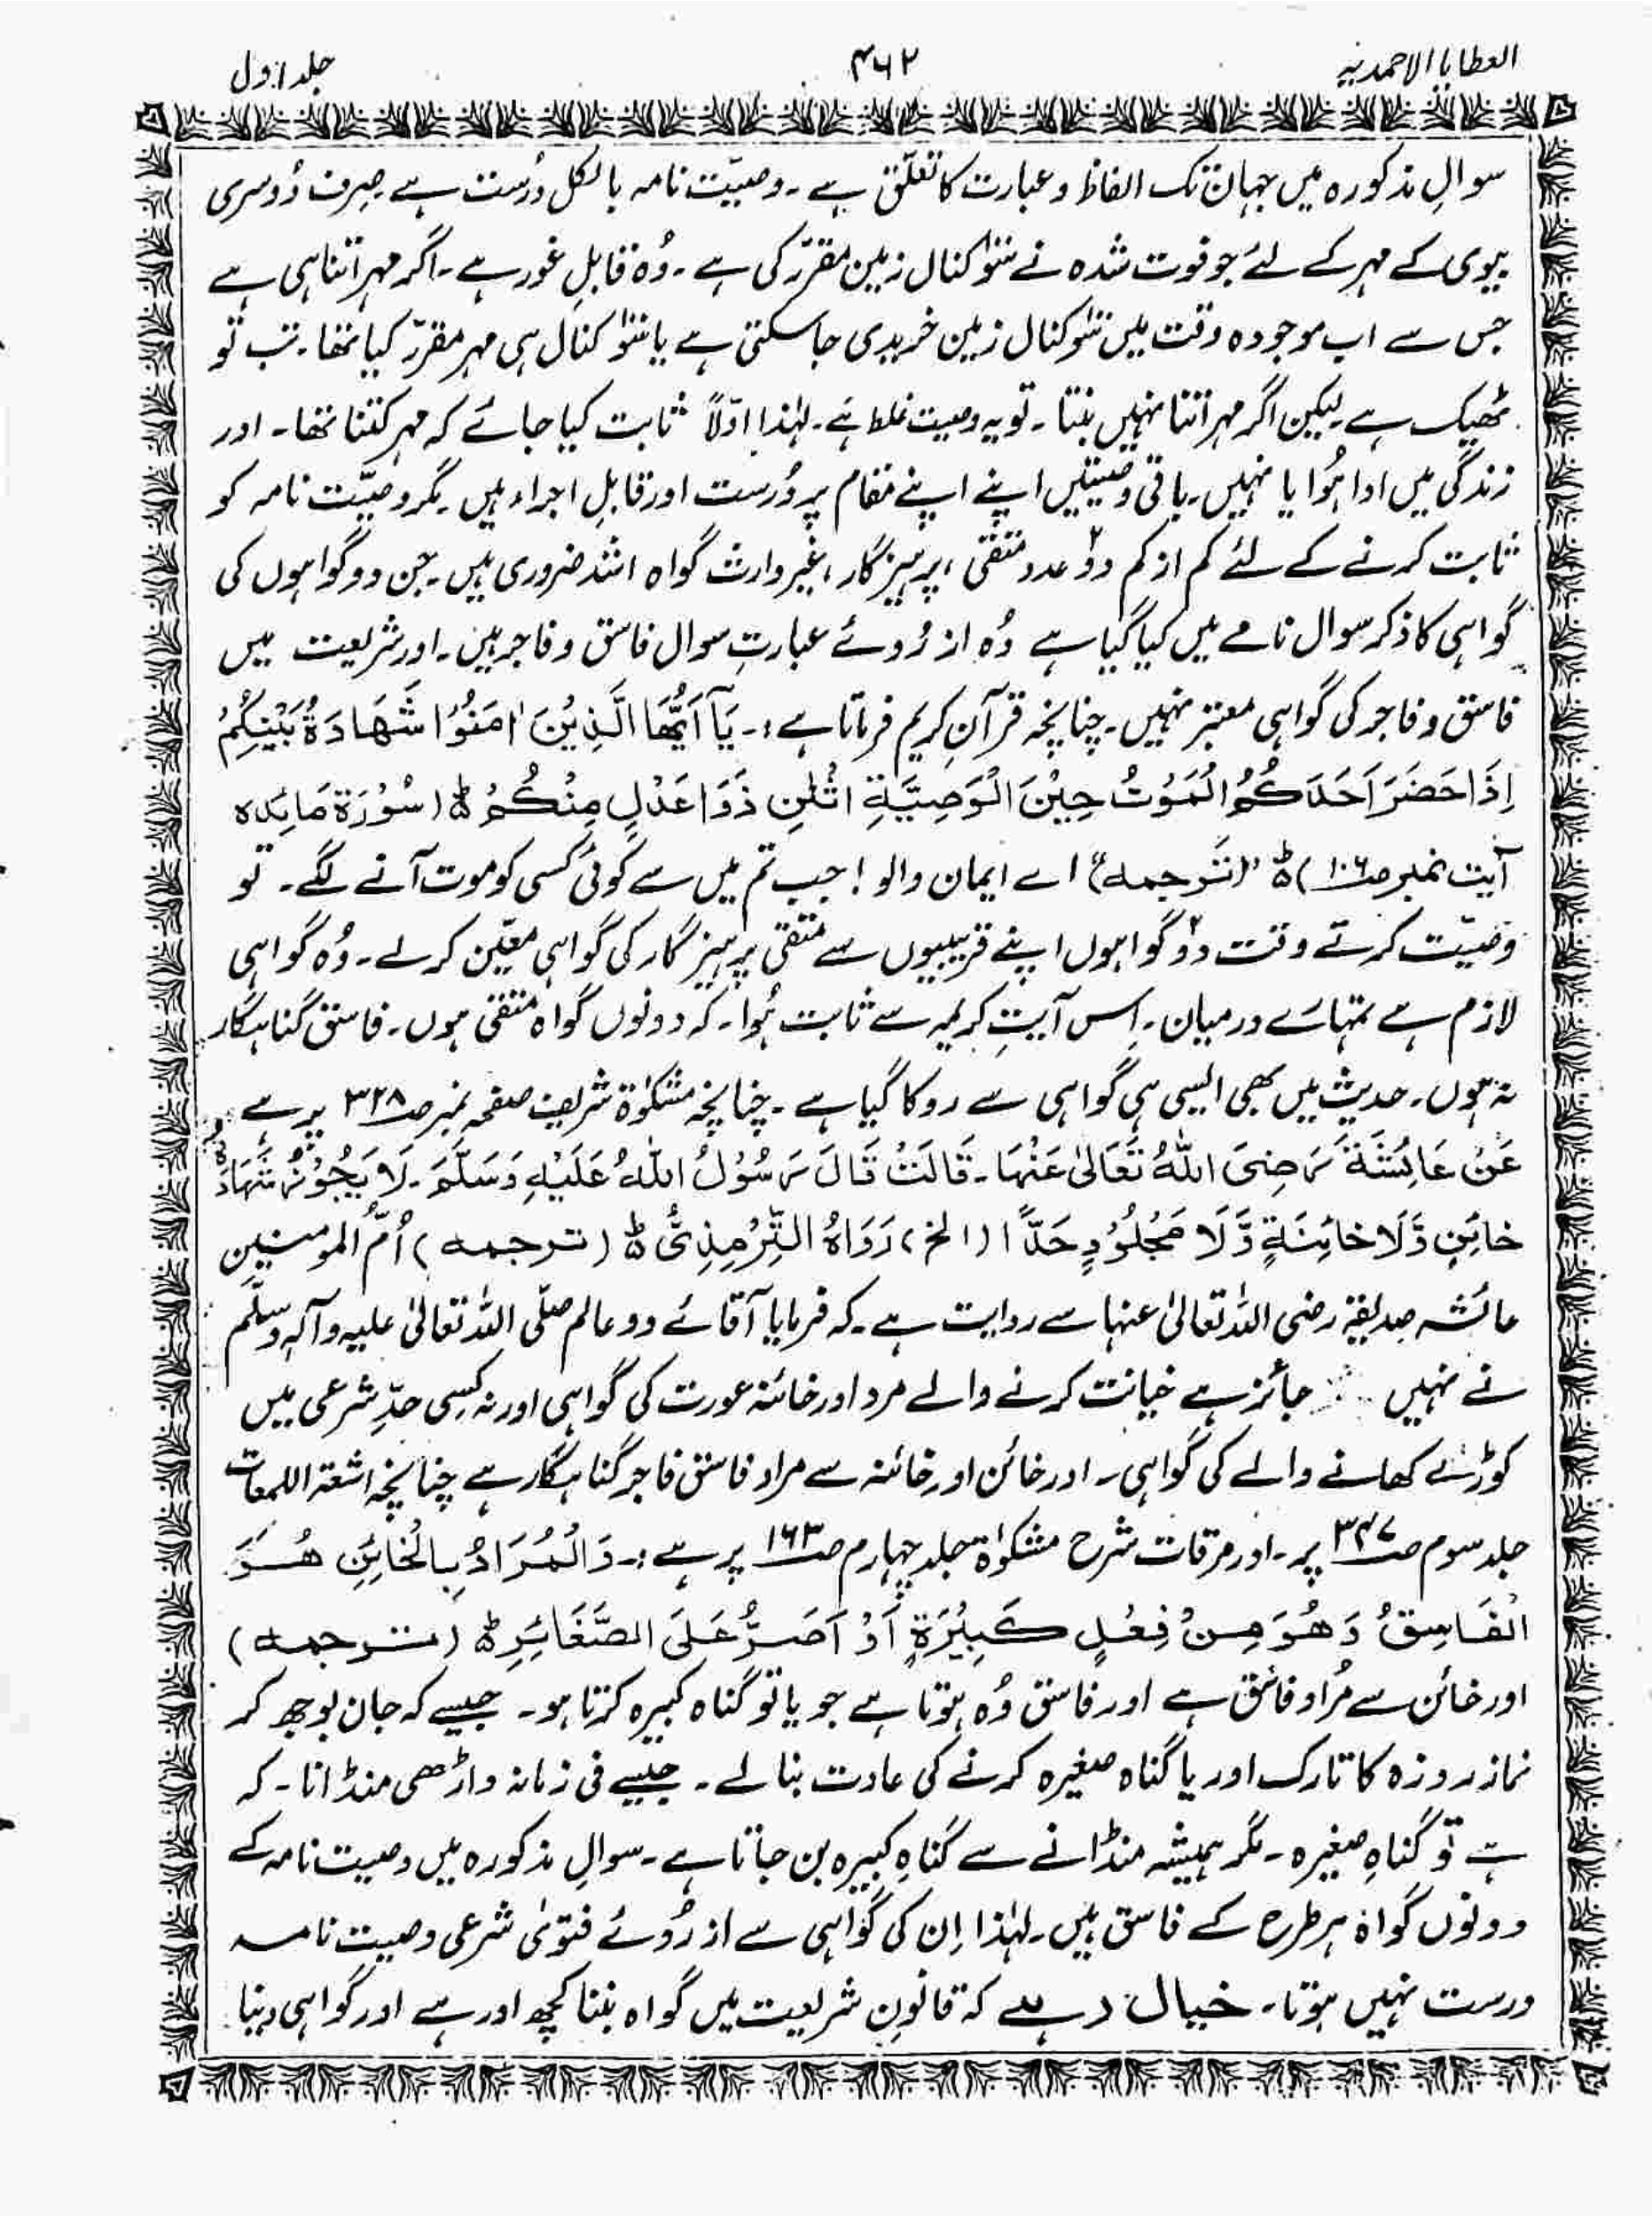 العطایا الاحمدیہ ۴۶۲ جلد اول
سوالِ مذکورہ میں جہاں تک الفاظ و عبارت کا تعلّق ہے ۔ وصیّت نامہ بالکل دُرست ہے ۔ صِرف دُوسری
بیوی کے مہر کے لئے جو فوت شدہ نے سَو کنال زمین مقرّر کی ہے ۔ وُہ قابلِ غور ہے ۔ اگر مہر اتنا ہی ہے
جس سے اب موجودہ وقت میں سَو کنال زمین خریدی جا سکتی ہے یا سَو کنال ہی مہر مقرّر کیا تھا ۔ تب تو
ٹھیک ہے لیکن اگر مہر اتنا نہیں بنتا ۔ تو یہ وصیت غلط ہَے ۔ لہٰذا اوّلاً ثابت کیا جائے کہ مہر کتنا تھا ۔ اور
زندگی میں ادا ہُوا یا نہیں ۔ باقی وصیتیں اپنے اپنے مقام پر دُرست اور قابلِ اجراء ہیں ۔ مگر وصیّت نامہ کو
ثابت کرنے کے لئے کم از کم دو۲ عدد متقی ، پرہیزگار ، غیر وارث گواہ اشد ضروری ہیں ۔ جن دو گواہوں کی
گواہی کا ذکر سوال نامے میں کیا گیا ہے وُہ از رُوئے عبارتِ سوال فاسق و فاجر ہیں ۔ اور شریعت میں
فاسق و فاجر کی گواہی معتبر نہیں ۔ چنانچہ قرآنِ کریم فرماتا ہے :۔ یَآ اَیُّھَا الَّذِیْنَ اٰمَنُوْا شَھَادَۃُ بَیْنِکُمْ
اِذَا حَضَرَ اَحَدَکُمُ الْمَوْتُ حِیْنَ الْوَصِیَّۃِ اثْنٰنِ ذَوَا عَدْلٍ مِنْکُمْ ط (سُوْرَۃ مَائِدہ
آیت نمبر صـ۱۰۶) ط "(تَرجمہ)" اے ایمان والو ! جب تم میں سے کوئی کسی کو موت آنے لگے ۔ تو
وصیّت کرتے وقت دو۲ گواہوں اپنے قریبیوں سے متقی پرہیزگار کی گواہی معیّن کرلے ۔ وُہ گواہی
لازم ہے تمہارے درمیان ۔ اِس آیتِ کریمہ سے ثابت ہُوا ۔ کہ دونوں گواہ متقی ہوں ۔ فاسق گناہگار
نہ ہوں ۔ حدیث میں بھی ایسی ہی گواہی سے روکا گیا ہے ۔ چنانچہ مشکوٰۃ شریف صفحہ نمبر صـ۳۲۸ پر ہے :
عَنْ عَائِشَۃَ رَضِیَ اللّٰہُ تَعَالٰی عَنْہَا ۔ قَالَتْ قَالَ رَسُوْلُ اللّٰہُ عَلَیْہِ وَسَلَّمَ ۔ لَا یَجُوْزُ شَہَادَۃُ
خائِنٍ وَّلَا خائِنَۃٍ وَّلَا مَجْلُوْدٍ حَدًّا (الخ) رَوَاہُ التِّرْمِذِیُّ ط (ترجمہ) اُمّ المومنین
عائشہ صدیقہ رضی اللہ تعالیٰ عنہا سے روایت ہے ۔ کہ فرمایا آقائے دو عالم صلّی اللہ تعالیٰ علیہ وآلہٖ وسلّم
نے نہیں جائز ہے خیانت کرنے والے مرد اور خائنہ عورت کی گواہی اور نہ کِسی حدِّ شرعی میں
کوڑے کھانے والے کی گواہی ۔ اور خائن اور خائنہ سے مراد فاسق فاجر گناہگار ہے چنانچہ اشعۃ اللمعات
جلد سوم صـ۳۴۷ پر ۔ اور مرقات شرح مشکوٰۃ جلد چہارم صـ۱۶۳ پر ہے :۔ وَالْمُرَادُ بِالْخَائِنِ ھُوَ
الْفَاسِقُ وَھُوَ مِنْ فِعْلٍ کَبِیْرَۃٍ اَوْ اَصَرُّ عَلَی الصَّغَائِرِ ط (ترجمہ)
اور خائن سے مُراد فاسق ہے اور فاسق وُہ ہوتا ہے جو یا تو گناہ کبیرہ کرتا ہو ۔ جیسے کہ جان بوجھ کر
نماز روزہ کا تارک اور یا گناہ صغیرہ کرنے کی عادت بنا لے ۔ جیسے فی زمانہ داڑھی منڈانا ۔ کہ
ہے تو گناہِ صغیرہ ۔ مگر ہمیشہ منڈانے سے گناہِ کبیرہ بن جاتا ہے ۔ سوالِ مذکورہ میں وصیت نامہ کے
دونوں گواہ ہر طرح کے فاسق ہیں ۔ لہٰذا اِن کی گواہی سے از رُوئے فتویٰ شرعی وصیت نامہ
درست نہیں ہوتا ۔ خیال رہے کہ قانونِ شریعت میں گواہ بننا کچھ اور ہے اور گواہی دینا